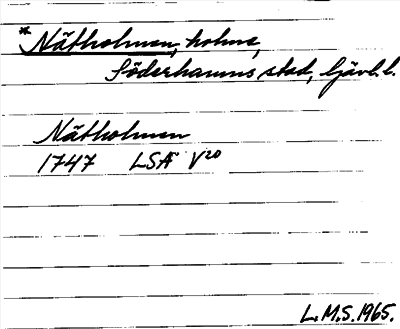 *Nätholmen, holme,
Söderhamns stad, Gävl. l.
Nätholmen
1747 LSÄ V20
L.M.S. 1965.